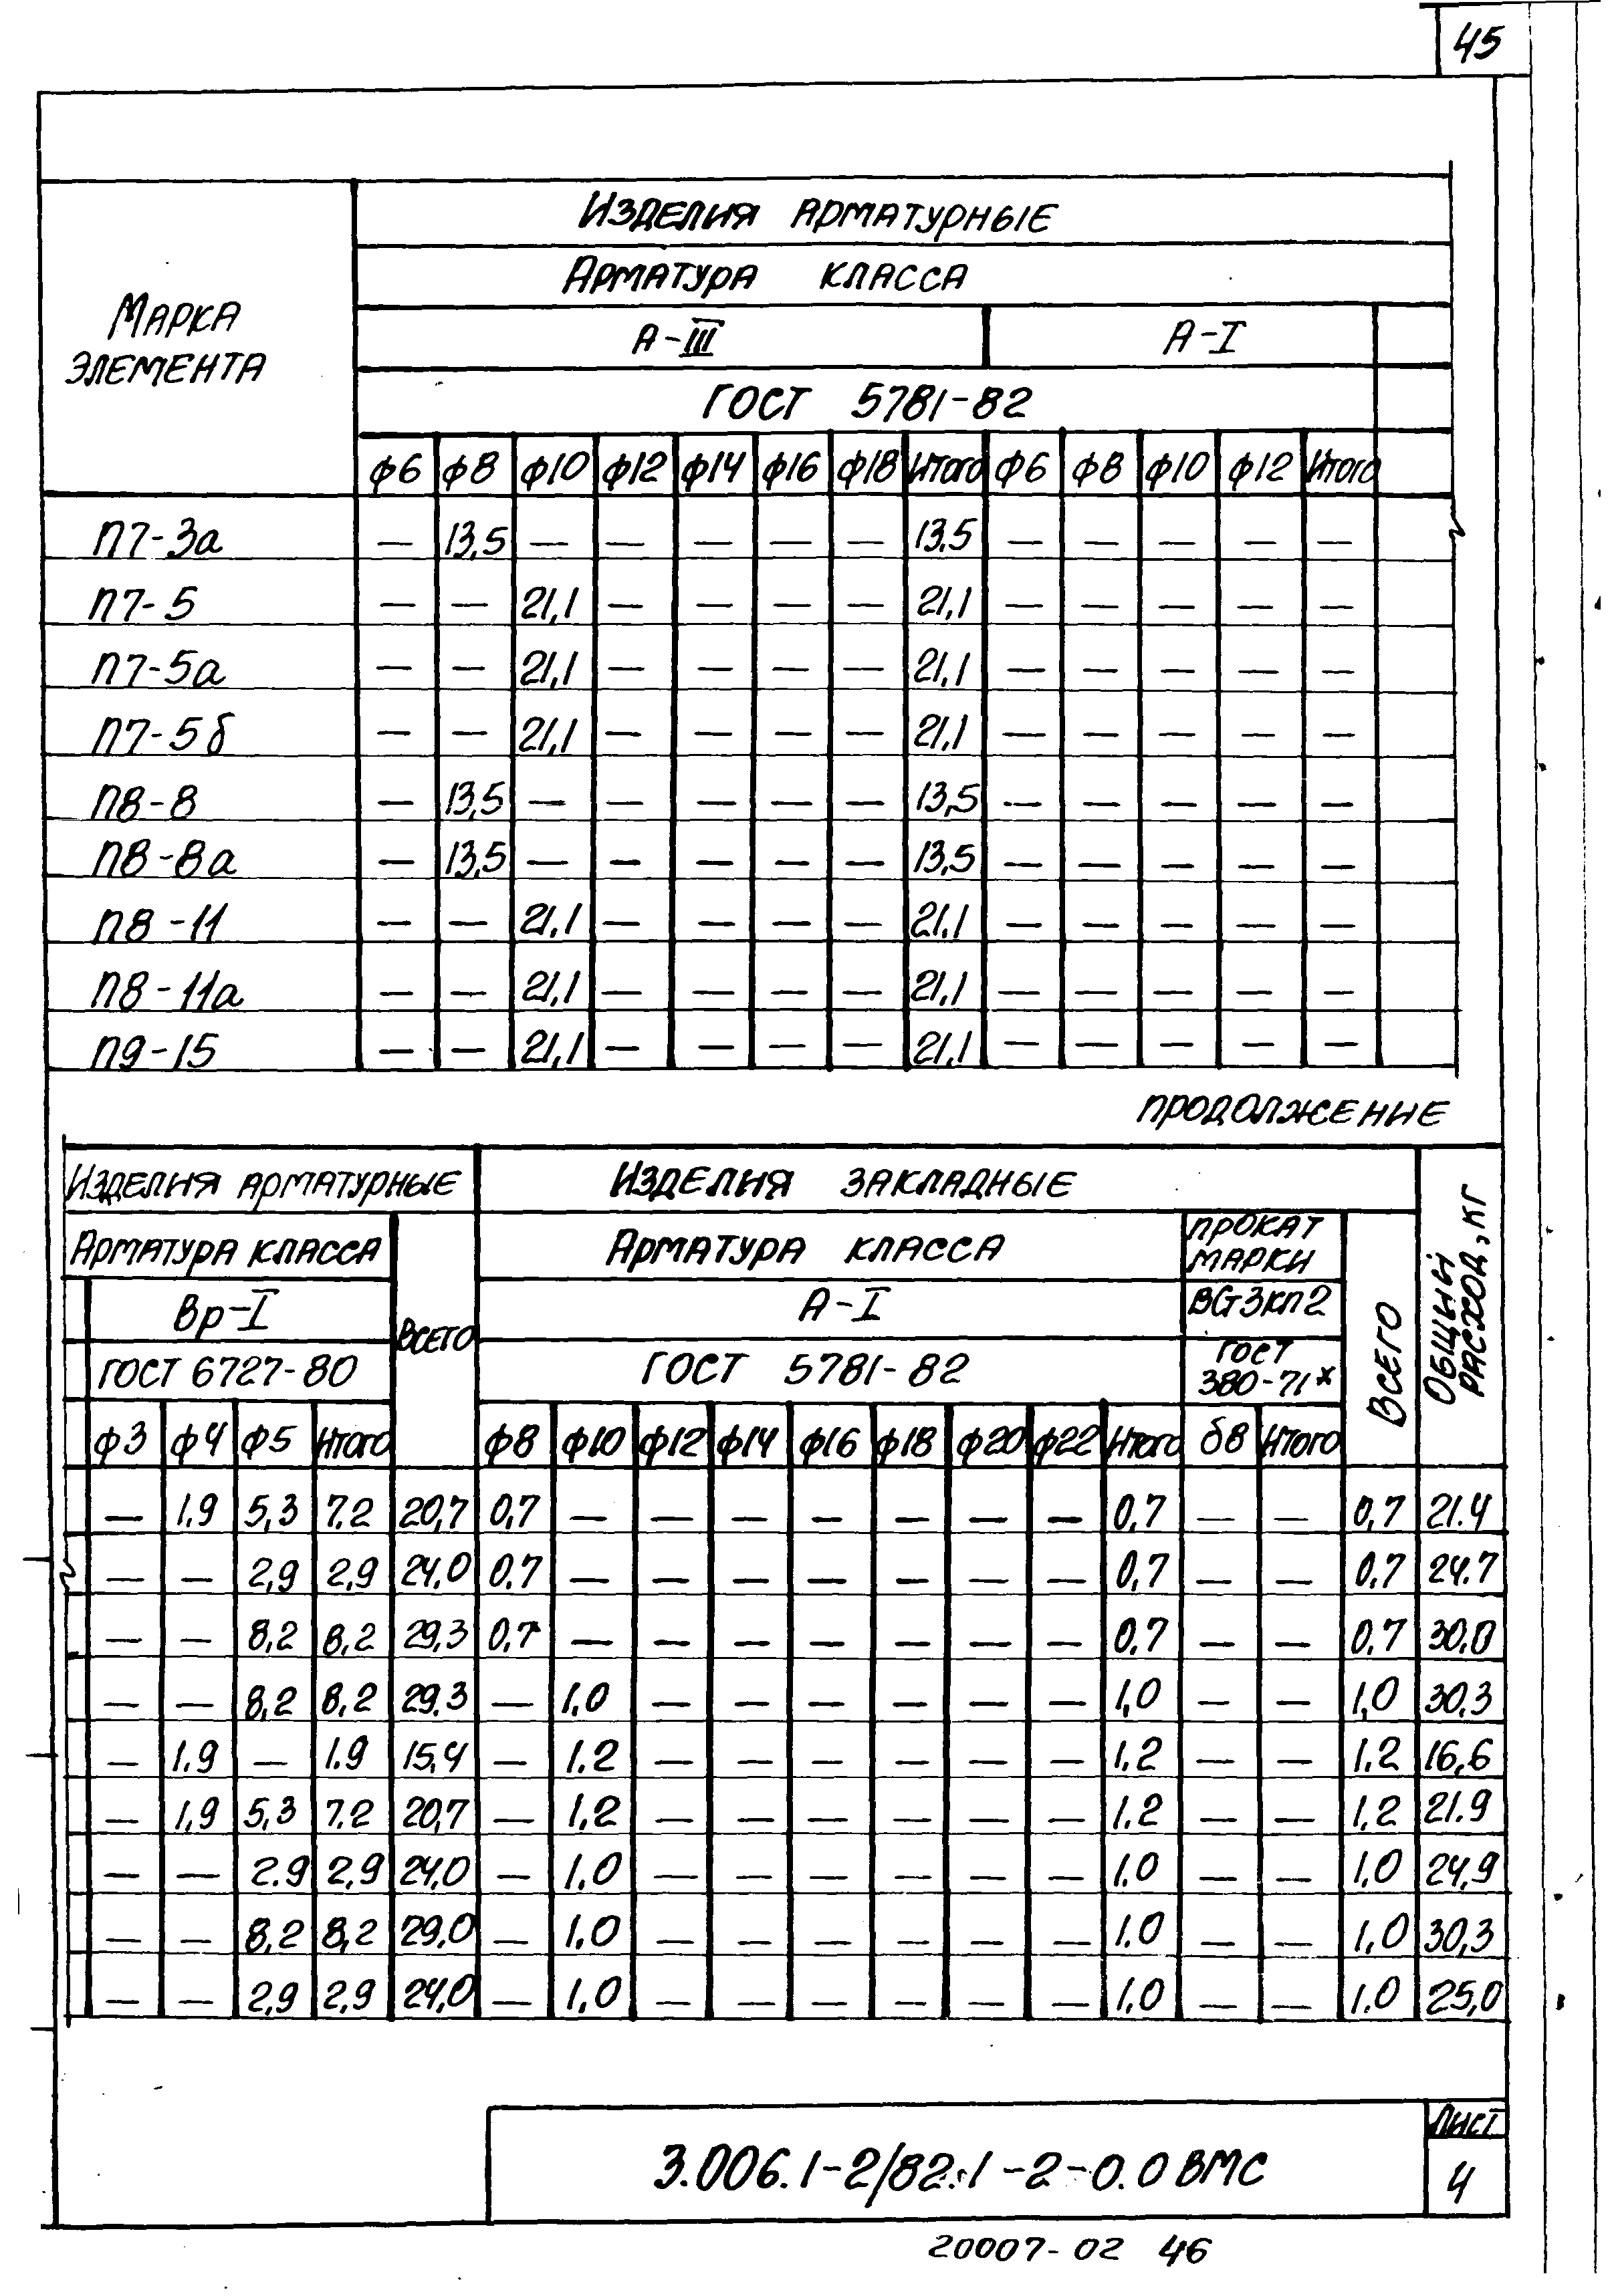 45
Изделия арматурные
Арматура класса
Марка элемента
А-III А-I
ГОСТ 5781-82
ф6 ф8 ф10 ф12 ф14 ф16 ф18 Итого ф6 ф8 ф10 ф12 Итого
П7-3а — 13,5 — — — — — 13.5 — — — — —
П7-5 — — 21,1 — — — — 21,1 — — — — —
П7-5а — — 21,1 — — — — 21,1 — — — — —
П7-5б — — 21,1 — — — — 21,1 — — — — —
П8-8 — 13,5 — — — — — 13,5 — — — — —
П8-8а — 13,5 — — — — — 13,5 — — — — —
П8-11 — — 21,1 — — — — 21,1 — — — — —
П8-11а — — 21,1 — — — — 21,1 — — — — —
П9-15 — — 21,1 — — — — 21,1 — — — — —
продолжение
Изделия арматурные Изделия закладные Общий расход, кг
Арматура класса Всего Арматура класса Прокат марки Всего
Вр-I А-I ВСт3кп2
ГОСТ 6727-80 ГОСТ 5781-82 ГОСТ 380-71*
ф3 ф4 ф5 Итого ф8 ф10 ф12 ф14 ф16 ф18 ф20 ф22 Итого δ8 Итого
— 1.9 5,3 7.2 20,7 0,7 — — — — — — — 0,7 — — 0,7 21.4
— — 2,9 2,9 24.0 0.7 — — — — — — — 0,7 — — 0,7 24.7
— — 8,2 8,2 29,3 0,7 — — — — — — — 0,7 — — 0,7 30,0
— — 8,2 8,2 29.3 — 1,0 — — — — — — 1,0 — — 1,0 30,3
— 1.9 — 1.9 15,4 — 1.2 — — — — — — 1,2 — — 1.2 16,6
— 1,9 5,3 7.2 20,7 — 1,2 — — — — — — 1.2 — — 1,2 21.9
— — 2.9 2,9 24,0 — 1.0 — — — — — — 1.0 — — 1.0 24,9
— — 8,2 8,2 29,0 — 1,0 — — — — — — 1.0 — — 1,0 30,3
— — 2,9 2,9 24,0 — 1,0 — — — — — — 1,0 — — 1.0 25,0
3.006.1-2/82.1-2-0.0 ВМС
Лист
4
20007-02 46